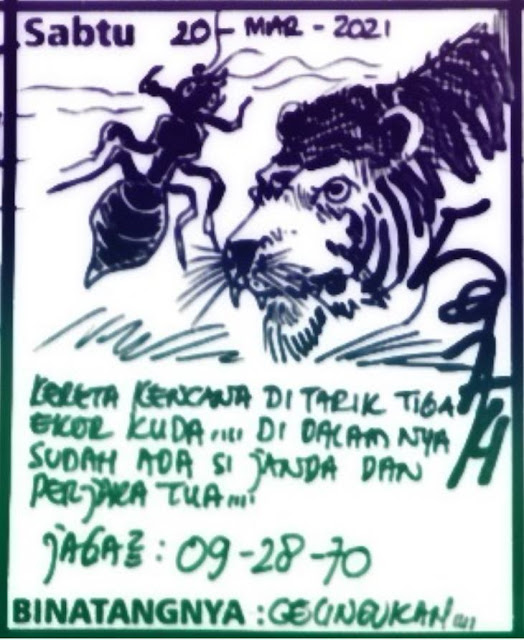 Sabtu 20 - MAR - 2021
KERETA KENCANA DI TARIK TIGA
EKOR KUDA ..... DI DALAM NYA
SUDAH ADA SI JANDA DAN
PERJAKA TUA ....
JAGA2 : 09 - 28 - 70
BINATANGNYA : CECINGUKAN .....